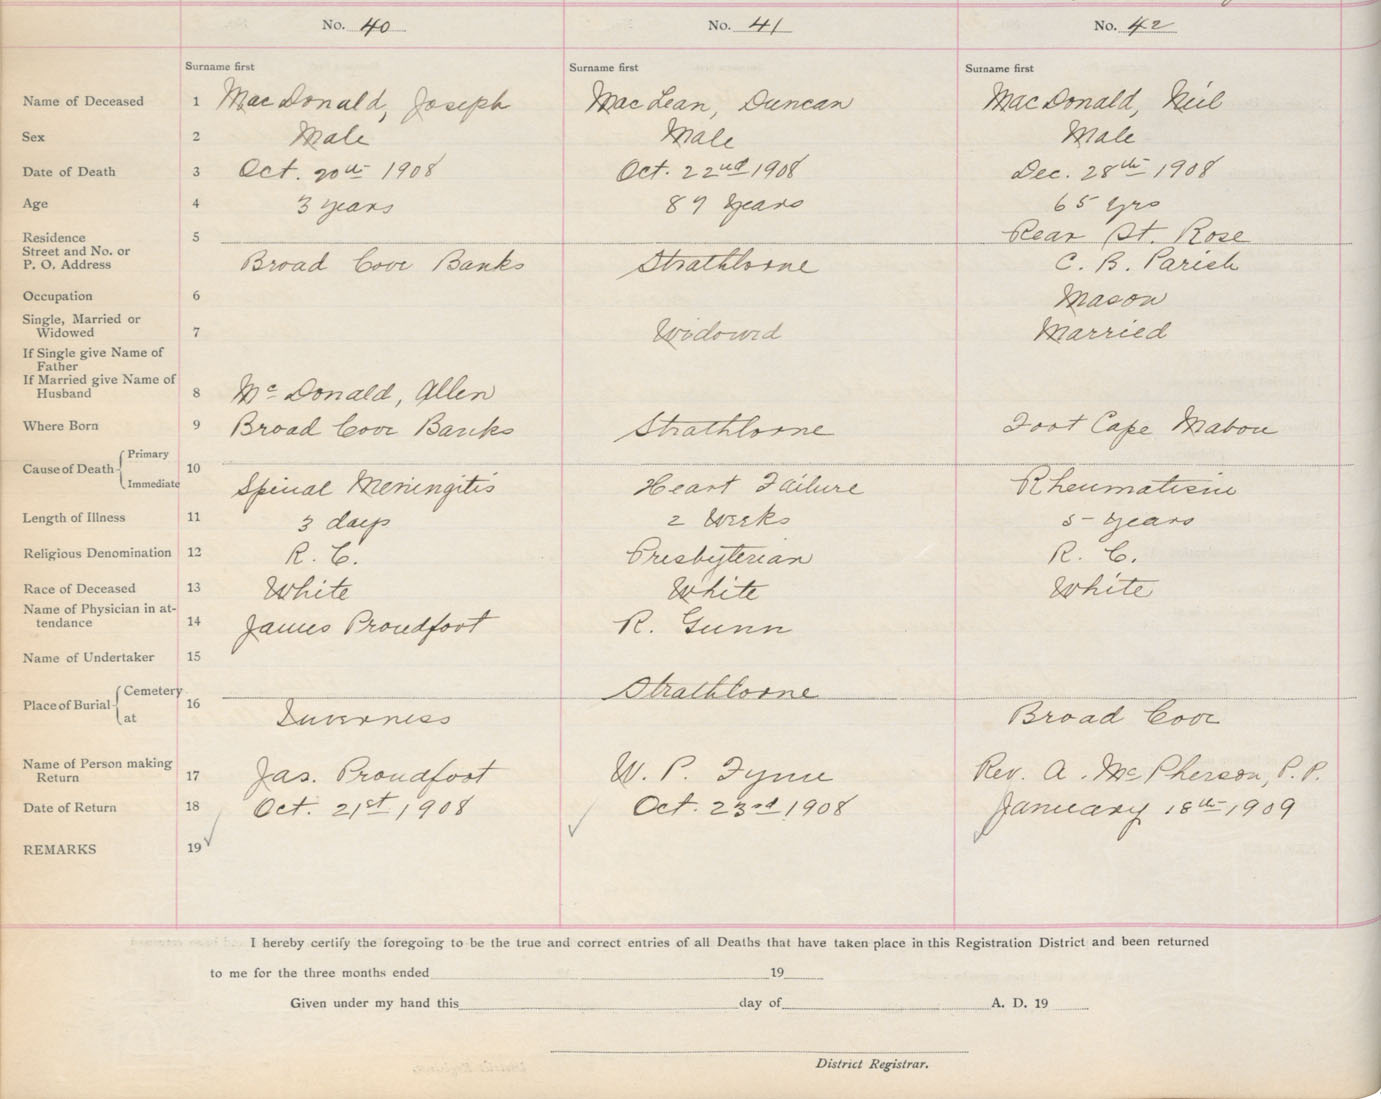 No. 40 No. 41 No. 42
Surname first Surname first Surname first
Name of Deceased 1 MacDonald, Joseph MacLean, Duncan MacDonald, Neil
Sex 2 Male Male Male
Date of Death 3 Oct. 20th 1908 Oct. 22nd 1908 Dec. 28th 1908
Age 4 3 years 87 years 65 yrs
Residence 5 Rear St. Rose
Street and No. or
P. O. Address Broad Cove Banks Strathlorne C. B. Parish
Occupation 6 Mason
Single, Married or
Widowed 7 Widowed Married
If Single give Name of
Father
If Married give Name of
Husband 8 McDonald, Allen
Where Born 9 Broad Cove Banks Strathlorne Foot Cape Mabou
Cause of Death Primary
10
Immediate Spinal Meningitis Heart Failure Rheumatism
Length of Illness 11 3 days 2 Weeks 5 years
Religious Denomination 12 R. C. Presbyterian R. C.
Race of Deceased 13 White White White
Name of Physician in at-
tendance 14 James Proudfoot R. Gunn
Name of Undertaker 15
Place of Burial Cemetery 16 Strathlorne
at Inverness Broad Cove
Name of Person making
Return 17 Jas. Proudfoot W. P. Rev. A. McPherson, P. P.
Date of Return 18 Oct. 21st, 1908 Oct. 23rd 1908 January 18th 1909
REMARKS 19
I hereby certify the foregoing to be the true and correct entries of all Deaths that have taken place in this Registration District and been returned
to me for the three months ended 19
Given under my hand this day of A. D. 19
District Registrar.